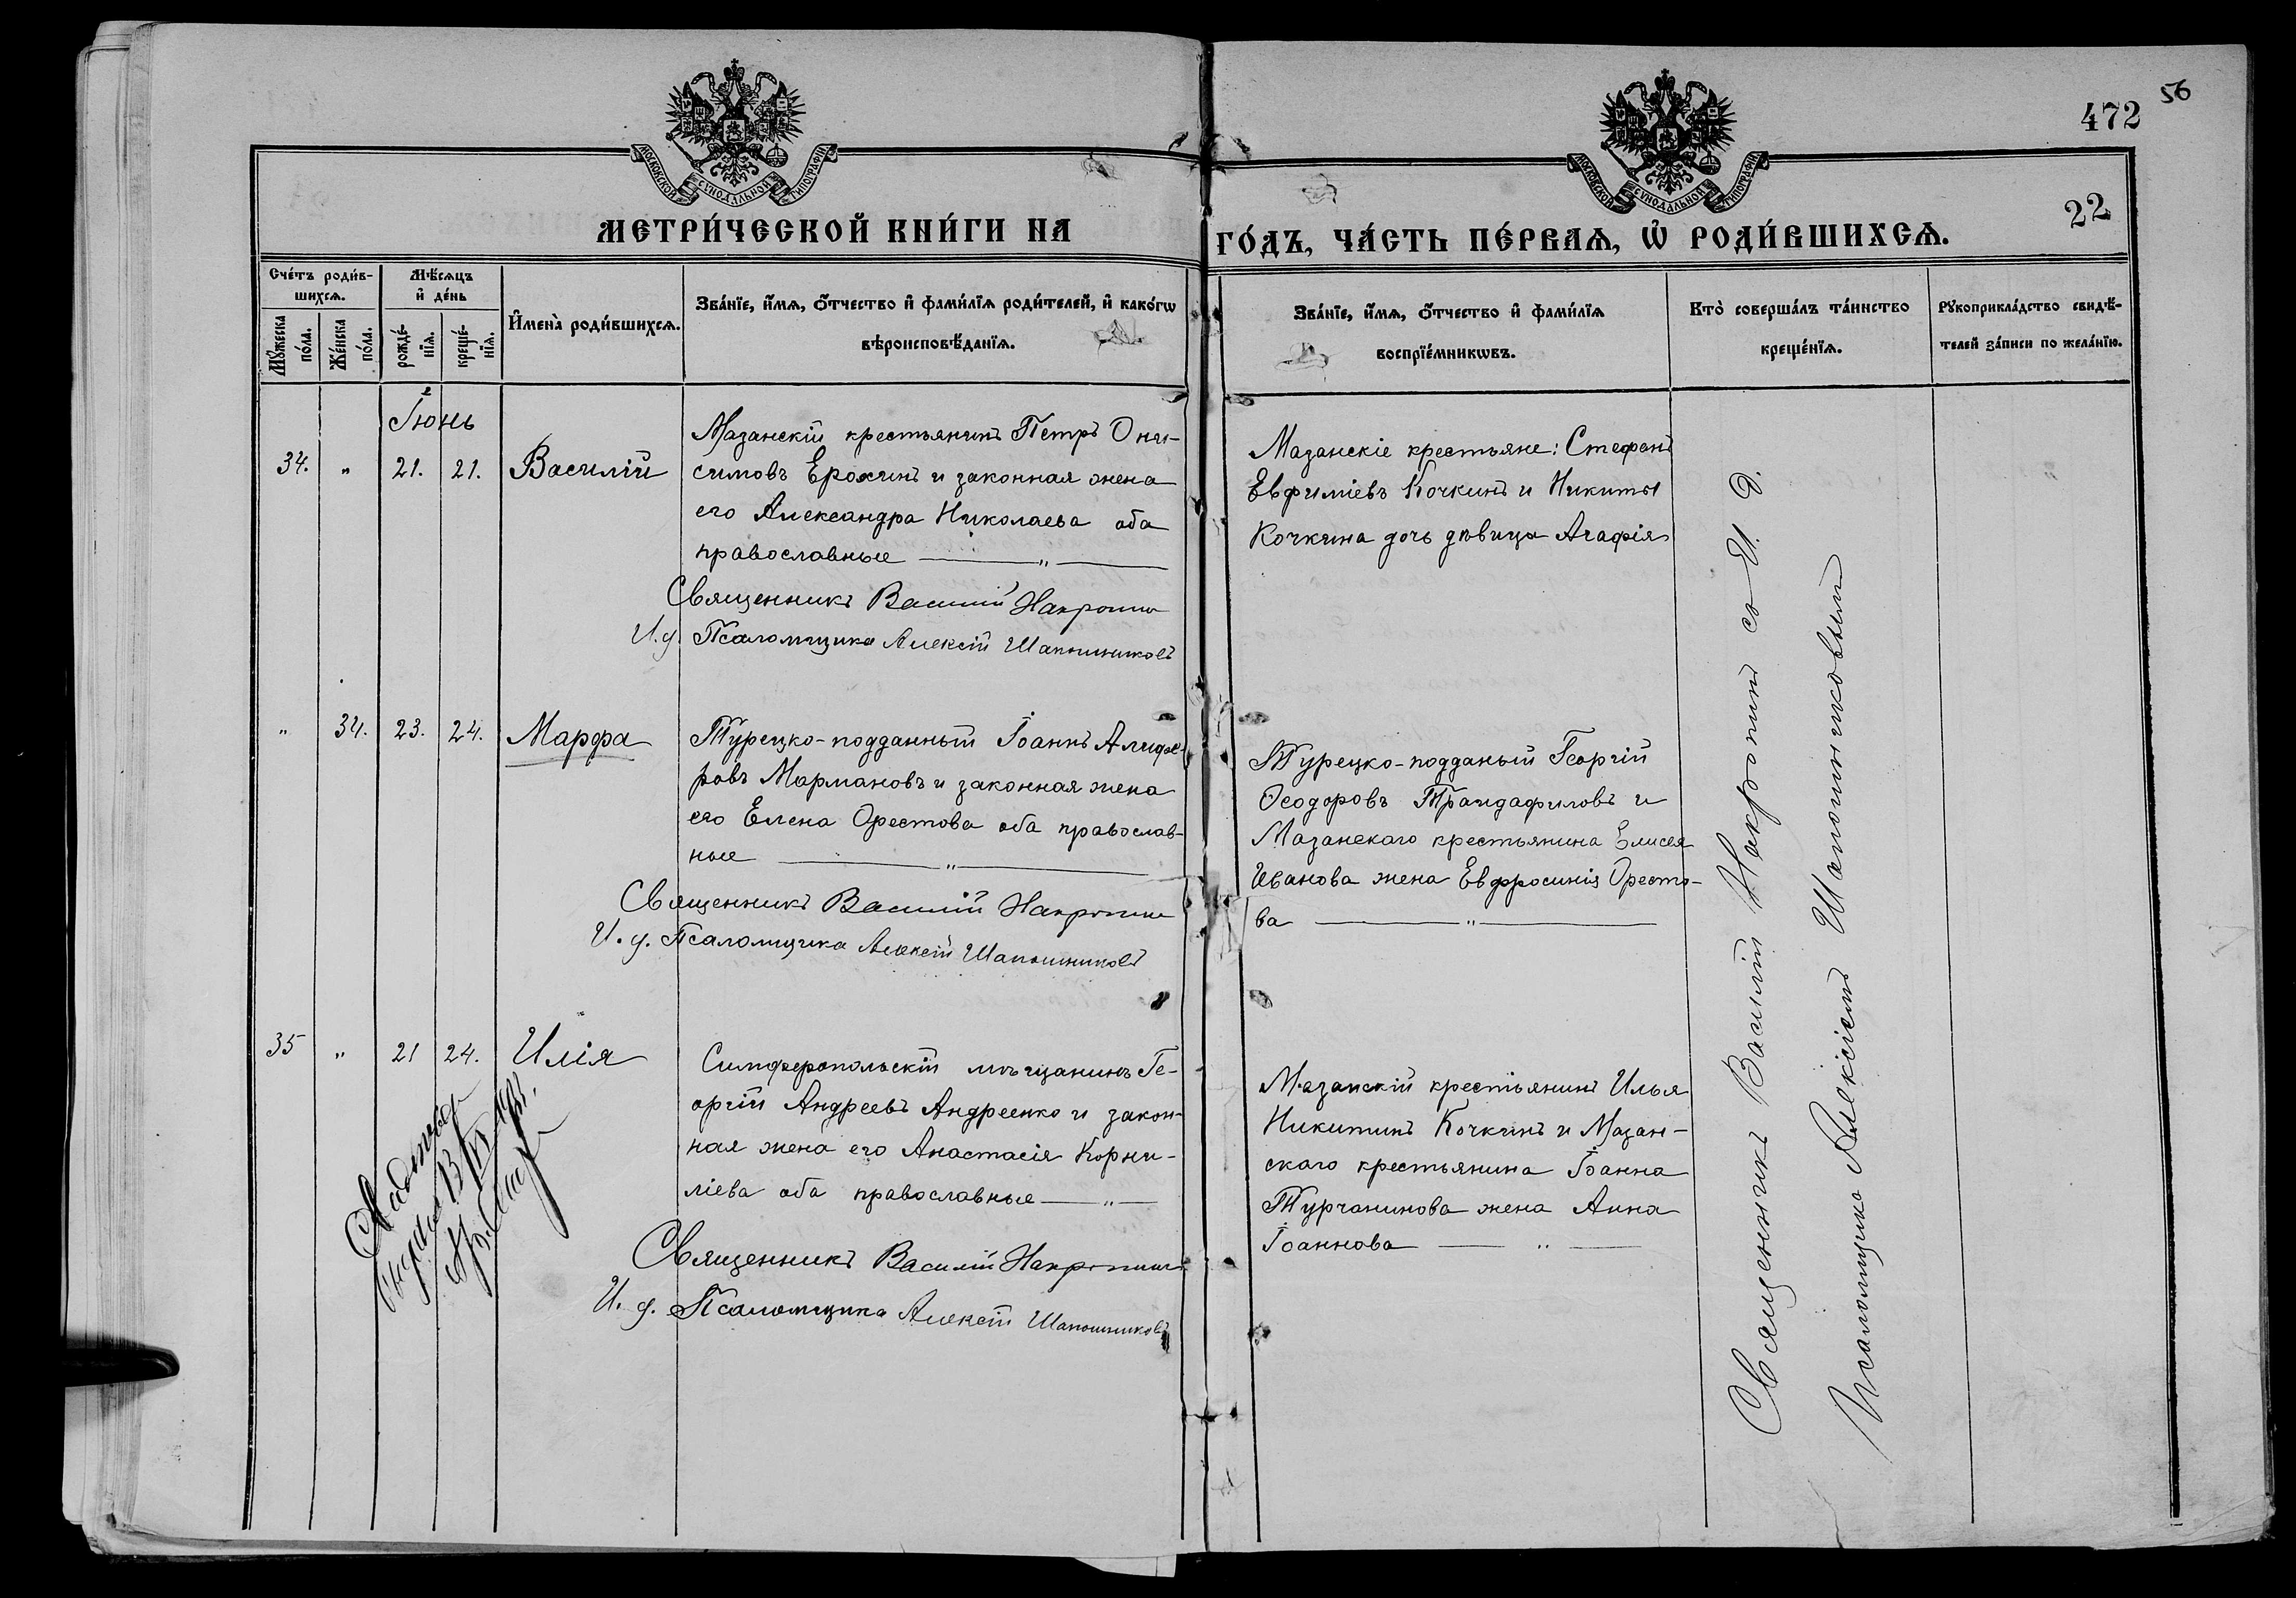 472
56
22
МОСКОВСКОЙ СѴНОДАЛЬНОЙ ТИПОГРАФІИ
МОСКОВСКОЙ СѴНОДАЛЬНОЙ ТИПОГРАФІИ
МЕТРИ́ЧЕСКОЙ КНИ́ГИ НА
ГО́ДЪ, ЧА́СТЬ ПЕ́РВАѦ, Ѽ РОДИ́ВШИХСѦ.
Сче́тъ роди́в-
шихсѧ.
Мꙋ́жеска
по́ла.
Же́нска
по́ла.
Мѣ́сѧцъ
и҆ де́нь
рожде́-
нїѧ.
креще́-
нїѧ.
И҆мена̀ роди́вшихсѧ.
Зва́нїе, и҆́мѧ, ѻ҆́тчество и҆ фами́лїѧ роди́телей, и҆ како́гѡ
вѣроисповѣ́данїѧ.
Зва́нїе, и҆́мѧ, ѻ҆́тчество и҆ фами́лїѧ
воспрїе́мникѡвъ.
Кто̀ соверша́лъ та́инство
креще́нїѧ.
Рꙋкоприкла́дство свидѣ́-
телей за́писи по жела́нїю.
Іюнь
34. " 21. 21. Василій
Мазанскій крестьянинъ Петръ Они-
симовъ Ерохинъ и законная жена
его Александра Николаева оба
православные — " —
Священникъ Василій Накропинъ
И. д. Псаломщика Алексій Шапошниковъ
Мазанскіе крестьяне: Стефанъ
Евфиміевъ Кочкинъ и Никиты
Кочкина дочь дѣвица Агафія
" 34. 23. 24. Марфа
Турецко-подданный Іоаннъ Алифе-
ровъ Мармановъ и законная жена
его Елена Орестова оба православ-
ные — " —
Священникъ Василій Накропинъ
И. д. Псаломщика Алексій Шапошниковъ
Турецко-подданый Георгій
Ѳеодоровъ Трандафиловъ и
Мазанскаго крестьянина Елисея
Иванова жена Евфросинія Оресто-
ва — " —
35 " 21 24. Илія
Симферопольскій мѣщанинъ Ге-
оргій Андреевъ Андреенко и закон-
ная жена его Анастасія Корни-
ліева оба православные — " —
Священникъ Василій Накропинъ
И. д. Псаломщика Алексій Шапошниковъ
Мазанскій крестіянинъ Илья
Никитинъ Кочкинъ и Мазан-
скаго крестьянина Іоанна
Турчанинова жена Анна
Іоаннова — " —
Священникъ Василій Накропинъ съ И. д.
Псаломщика Алексіемъ Шапошниковымъ